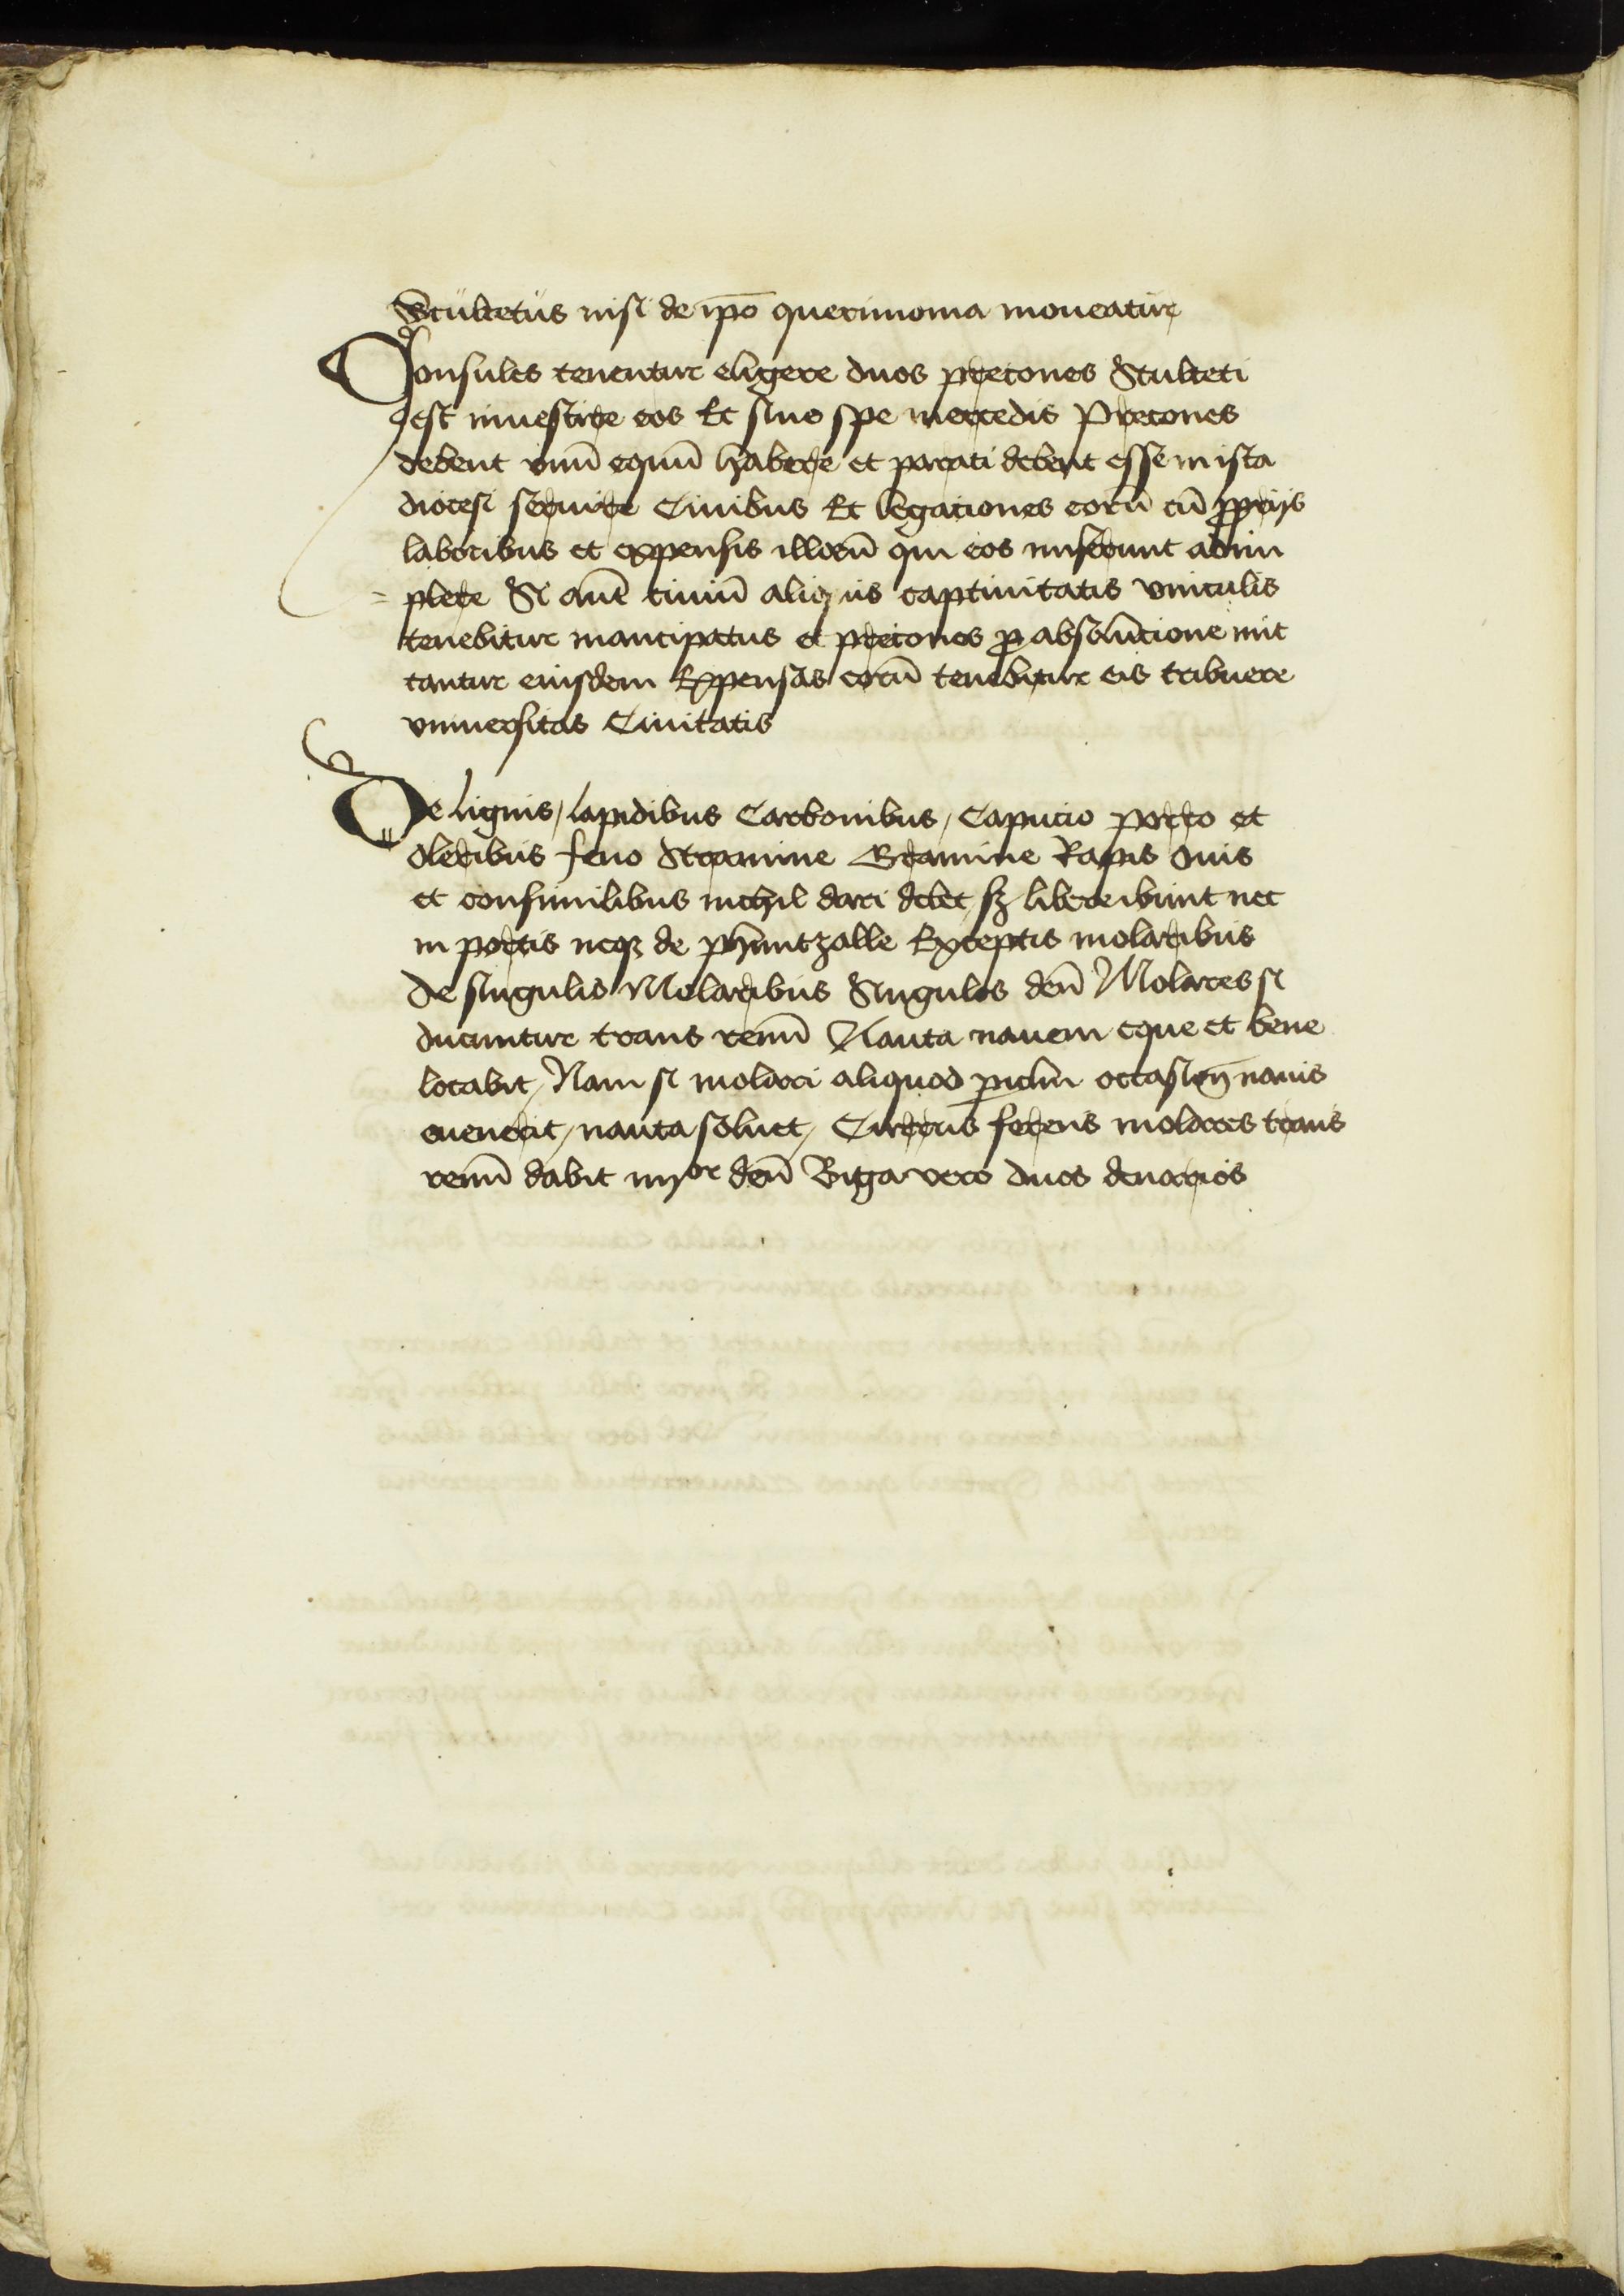 Scultetus nisi de ip̄o querimonia moueatur
Consules tenentur eligere duos precones Sculteti
est inuestire eos Et sine spe mercedis Precones
debent vnū equū habere et parati debent esse in ista
diocesi seruire Ciuibus Et legationes eorū cū ꝓprijs
laboribus et expensis illorū qui eos miserunt adim
plere Si aut̄ ciuiū aliquis captiuitatis vniculis
tenebitur mancipatus et precones ꝓ absolucione mit
tantur eiusdem Expensas eorū tenebitur eis tribuere
vniuersitas Ciuitatis
De lignis / lapidibus Carbonibus / Capucio porro et
oleribus feno Stramine Gramine Rapis Ouis
et consimilibus nichil dari debet sꝫ libere ibunt nec
in portis neqꝫ de phuntzalle Exceptis molaribus
De singulis Molaribus Singulos den̄ Molares si
ducuntur trans renū Nauta nauem eque et bene
locabit / Nam si molari aliquod pic̄lm occasion̄ nauis
euenerit / nauta soluet / Currus ferens molares trans
renū dabit iiijor den̄ Biga vero duos denarios